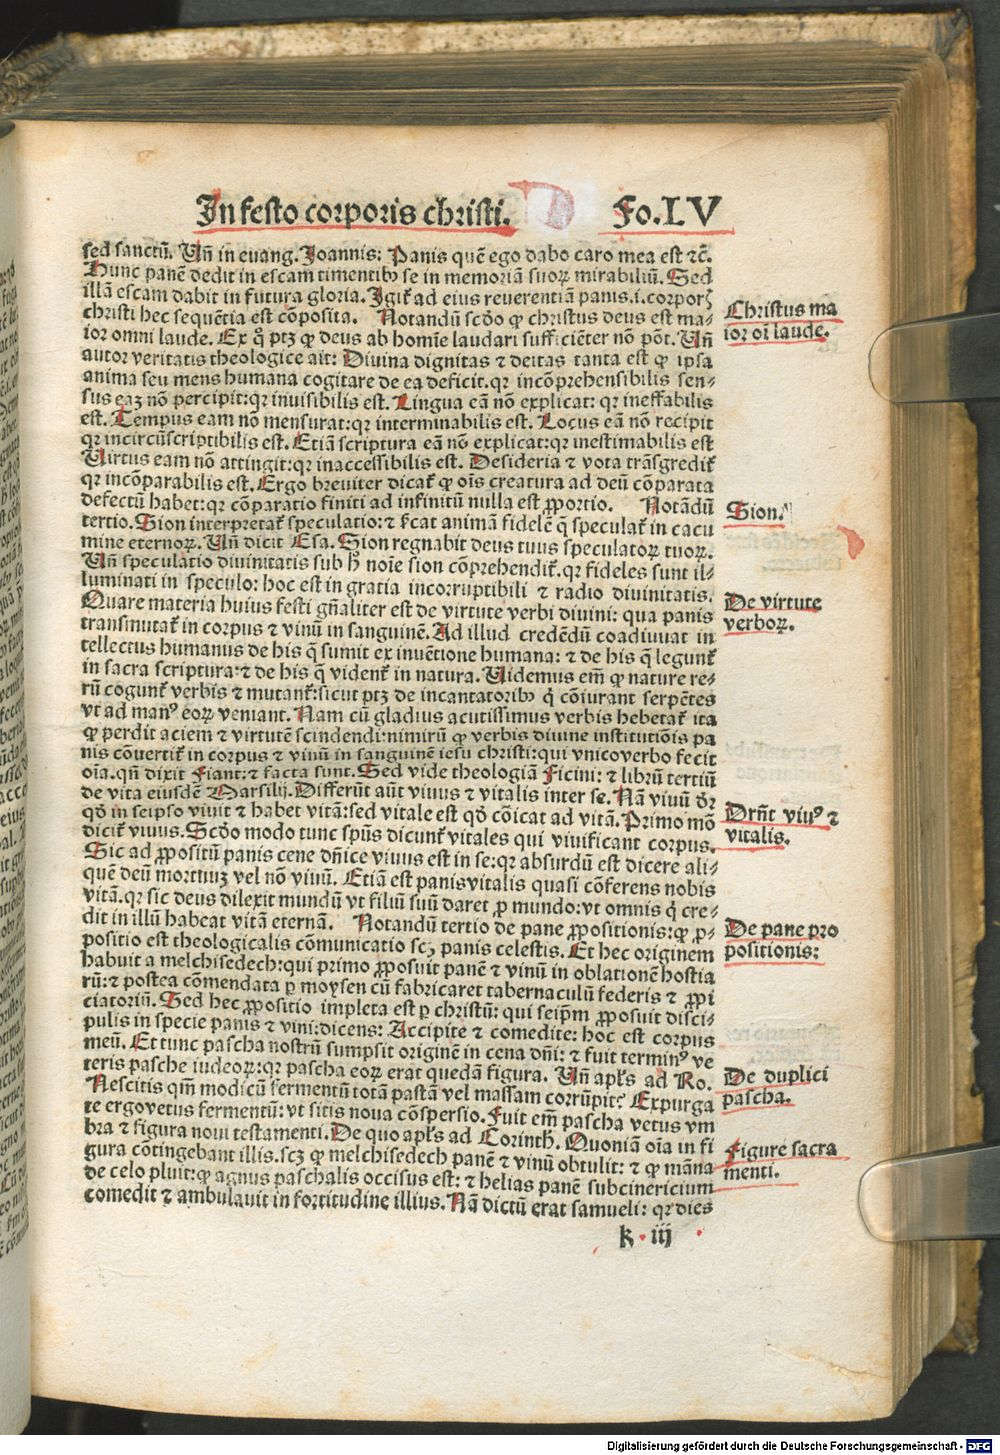 In festo corporis christi. Fo.LV
sed sanctū. Vñ in euang. Joannis: Panis quē ego dabo caro mea est ⁊c̄.
Hunc panē dedit in escam timentibꝰ se in memoriā suoꝝ mirabiliū. Sed
illā escam dabit in futura gloria. Igit̄ ad eius reuerentiā panis .i. corporꝭ
christi hec sequētia est cōposita. Notandū scďo ꝙ christus deus est ma⸗
ior omni laude. Ex q̊ ptꝫ ꝙ deus ab homīe laudari sufficiēter nō pōt. Vñ
autor veritatis theologice ait: Diuina dignitas ⁊ deitas tanta est ꝙ ipsa
anima seu mens humana cogitare de ea deficit. qꝛ incōprehensibilis sen⸗
sus eaꝫ nō percipit: qꝛ inuisibilis est. Lingua eā nō explicat: qꝛ ineffabilis
est. Tempus eam nō mensurat: qꝛ interminabilis est. Locus eā nō recipit
qꝛ incircūscriptibilis est. Etiā scriptura eā nō explicat: qꝛ inestimabilis est
Virtus eam nō attingit: qꝛ inaccessibilis est. Desideria ⁊ vota trāsgredit̄
qꝛ incōparabilis est. Ergo breuiter dicat̄ ꝙ oīs creatura ad deū cōparata
defectū habet: qꝛ cōparatio finiti ad infinitū nulla est ꝓportio. Notādū
tertio. Sion interpretat̄ speculatio: ⁊ sͨcat animā fidelē q̄ speculat̄ in cacu
mine eternoꝝ. Vñ dicit Esa. Sion regnabit deus tuus speculatoꝝ tuoꝝ.
Vñ speculatio diuinitatis sub hͦ noīe sion cōprehendit̄. qꝛ fideles sunt il⸗
luminati in speculo: hoc est in gratia incorruptibili ⁊ radio diuinitatis.
Quare materia huius festi gñaliter est de virtute verbi diuini: qua panis
transmutat̄ in corpus ⁊ vinū in sanguinē. Ad illud credēdū coadiuuat in
tellectus humanus de his q̄ sumit ex inuētione humana: ⁊ de his q̄ legunt̄
in sacra scriptura: ⁊ de his q̄ vident̄ in natura. Videmus em̄ ꝙ nature re⸗
rū cogunt̄ verbis ⁊ mutant̄: sicut ptꝫ de incantatoribꝰ q̇ cōiurant serpētes
vt ad manꝰ eoꝝ veniant. Nam cū gladius acutissimus verbis hebetat̄ ita
ꝙ perdit aciem ⁊ virtutē scindendi: nimirū ꝙ verbis diuine institutiōis pa
nis cōuertit̄ in corpus ⁊ vinū in sanguinē iesu christi: qui vnico verbo fecit
oīa. qñ dixit Fiant: ⁊ facta sunt. Sed vide theologiā Ficini: ⁊ librū tertiū
de vita eiusdē Marsilij. Differūt aūt viuus ⁊ vitalis inter se. Nā viuū dꝛ̄
qďo in seipso viuit ⁊ habet vitā: sed vitale est qďo cōicat ad vitā. Primo mō
dicit̄ viuus. Scďo modo tunc spūs dicunt̄ vitales qui viuificant corpus.
Sic ad ꝓpositū panis cene dñice viuus est in se: qꝛ absurdū est dicere ali⸗
quē deū mortuuꝫ vel nō viuū. Etiā est panis vitalis quasi cōferens nobis
vitā. qꝛ sic deus dilexit mundū vt filiū suū daret ꝓ mundo: vt omnis q̇ cre⸗
dit in illū habeat vitā eternā. Notandū tertio de pane ꝓpositionis: ꝙ ꝓ⸗
positio est theologicalis cōmunicatio scꝫ panis celestis. Et hec originem
habuit a melchisedech: qui primo ꝓposuit panē ⁊ vinū in oblationē hostia
rū: ⁊ postea cōmendata ꝑ moysen cū fabricaret tabernaculū federis ⁊ ꝓpi
ciatoriū. Sed hec ꝓpositio impleta est ꝑ christū: qui seipm̄ ꝓposuit disci⸗
pulis in specie panis ⁊ vini: dicens: Accipite ⁊ comedite: hoc est corpus
meū. Et tunc pascha nostrū sumpsit originē in cena dñi: ⁊ fuit terminꝰ ve
teris pasche iudeoꝝ: qꝛ pascha eoꝝ erat quedā figura. Vñ apl̄s ad Ro.
Nescitis qm̄ modicū fermentū totā pastā vel massam corrūpit? Expurga
te ergo vetus fermentū: vt sitis noua cōspersio. Fuit em̄ pascha vetus vm
bra ⁊ figura noui testamenti. De quo apl̄s ad Corinth. Quoniā oīa in fi
gura cōtingebant illis. scꝫ ꝙ melchisedech panē ⁊ vinū obtulit: ⁊ ꝙ māna
de celo pluit: ꝙ agnus paschalis occisus est: ⁊ helias panē subcinericium
comedit ⁊ ambulauit in fortitudine illius. Nā dictū erat samueli: qꝛ dies
k iij
Christus ma
ior oī laude.
Sion.
De virtute
verboꝝ.
Drñt viuꝰ ⁊
vitalis.
De pane pro
positionis:
De duplici
pascha.
Figure sacra
menti.
Digitalisierung gefördert durch die Deutsche Forschungsgemeinschaft - DFG